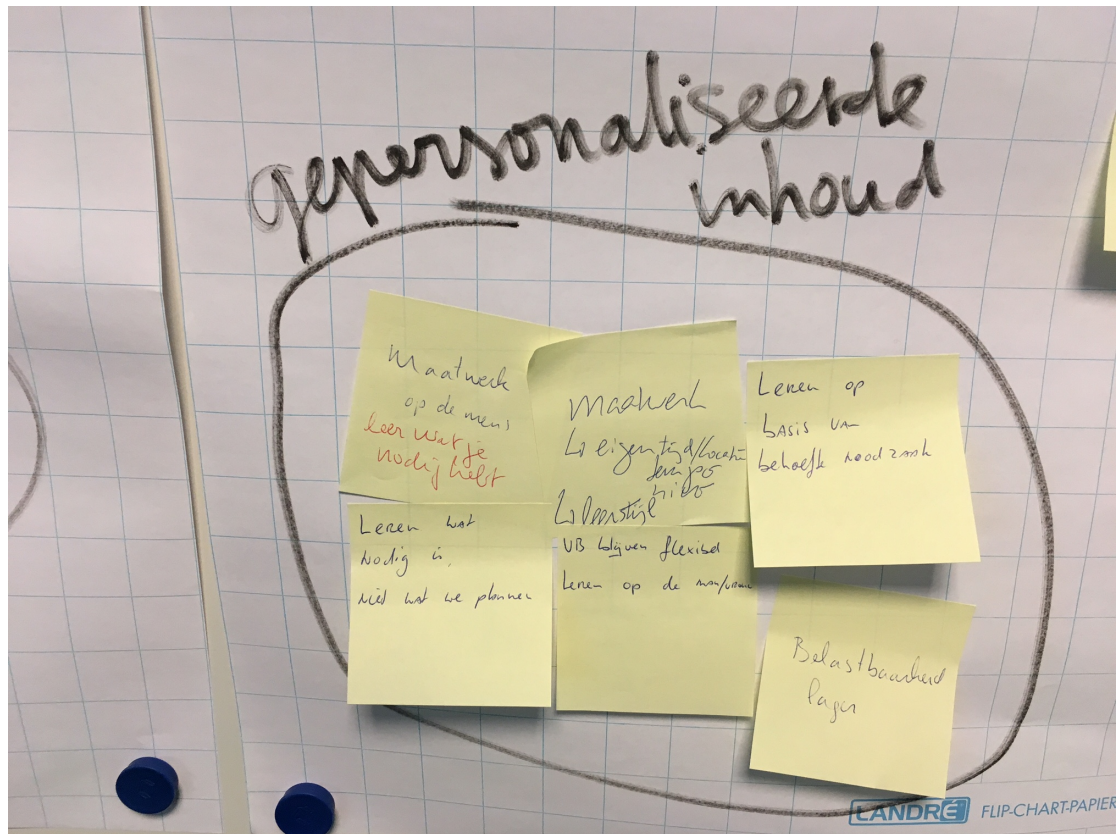 gepersonaliseerde
inhoud
Maatwerk
op de mens
leer wat je
nodig hebt
Maatwerk
↳ eigen tijd/locatie
tempo
nivo
↳ leerstijl
Leren op
basis van
behoefte noodzaak
Leren wat
nodig is,
niet wat we plannen
VB blijven flexibel
Leren op de man/vrouw
Belastbaarheid
lager
LANDRÉ FLIP-CHART-PAPIER